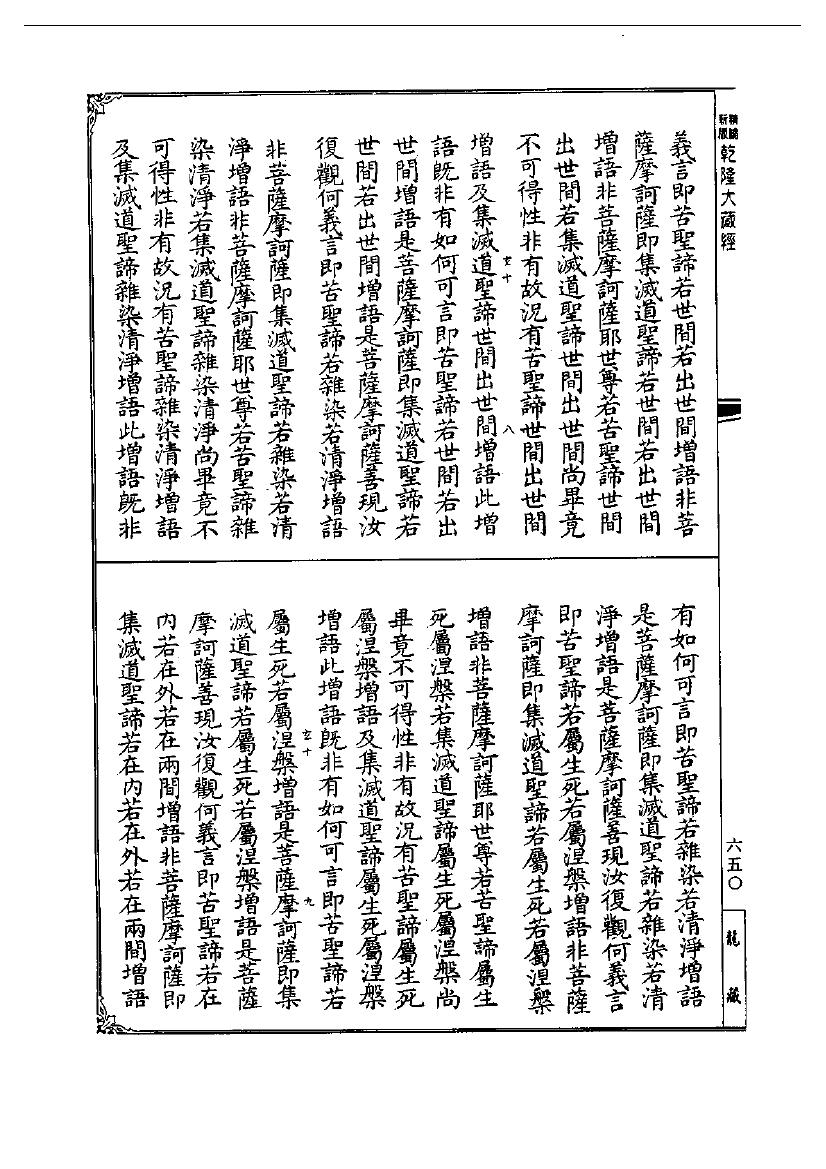 精縮
新版
乾隆大藏經
義言即苦聖諦若世間若出世間增語非菩
薩摩訶薩即集滅道聖諦若世間若出世間
增語非菩薩摩訶薩耶世尊若苦聖諦世間
出世間若集滅道聖諦世間出世間尚畢竟
不可得性非有故況有苦聖諦世間出世間
玄十
八
增語及集滅道聖諦世間出世間增語此增
語既非有如何可言即苦聖諦若世間若出
世間增語是菩薩摩訶薩即集滅道聖諦若
世間若出世間增語是菩薩摩訶薩善現汝
復觀何義言即苦聖諦若雜染若清淨增語
非菩薩摩訶薩即集滅道聖諦若雜染若清
淨增語非菩薩摩訶薩耶世尊若苦聖諦雜
染清淨若集滅道聖諦雜染清淨尚畢竟不
可得性非有故況有苦聖諦雜染清淨增語
及集滅道聖諦雜染清淨增語此增語既非
有如何可言即苦聖諦若雜染若清淨增語
是菩薩摩訶薩即集滅道聖諦若雜染若清
淨增語是菩薩摩訶薩善現汝復觀何義言
即苦聖諦若屬生死若屬涅槃增語非菩薩
摩訶薩即集滅道聖諦若屬生死若屬涅槃
增語非菩薩摩訶薩耶世尊若苦聖諦屬生
死屬涅槃若集滅道聖諦屬生死屬涅槃尚
畢竟不可得性非有故況有苦聖諦屬生死
屬涅槃增語及集滅道聖諦屬生死屬涅槃
增語此增語既非有如何可言即苦聖諦若
玄十
九
屬生死若屬涅槃增語是菩薩摩訶薩即集
滅道聖諦若屬生死若屬涅槃增語是菩薩
摩訶薩善現汝復觀何義言即苦聖諦若在
內若在外若在兩間增語非菩薩摩訶薩即
集滅道聖諦若在內若在外若在兩間增語
六五〇
龍藏